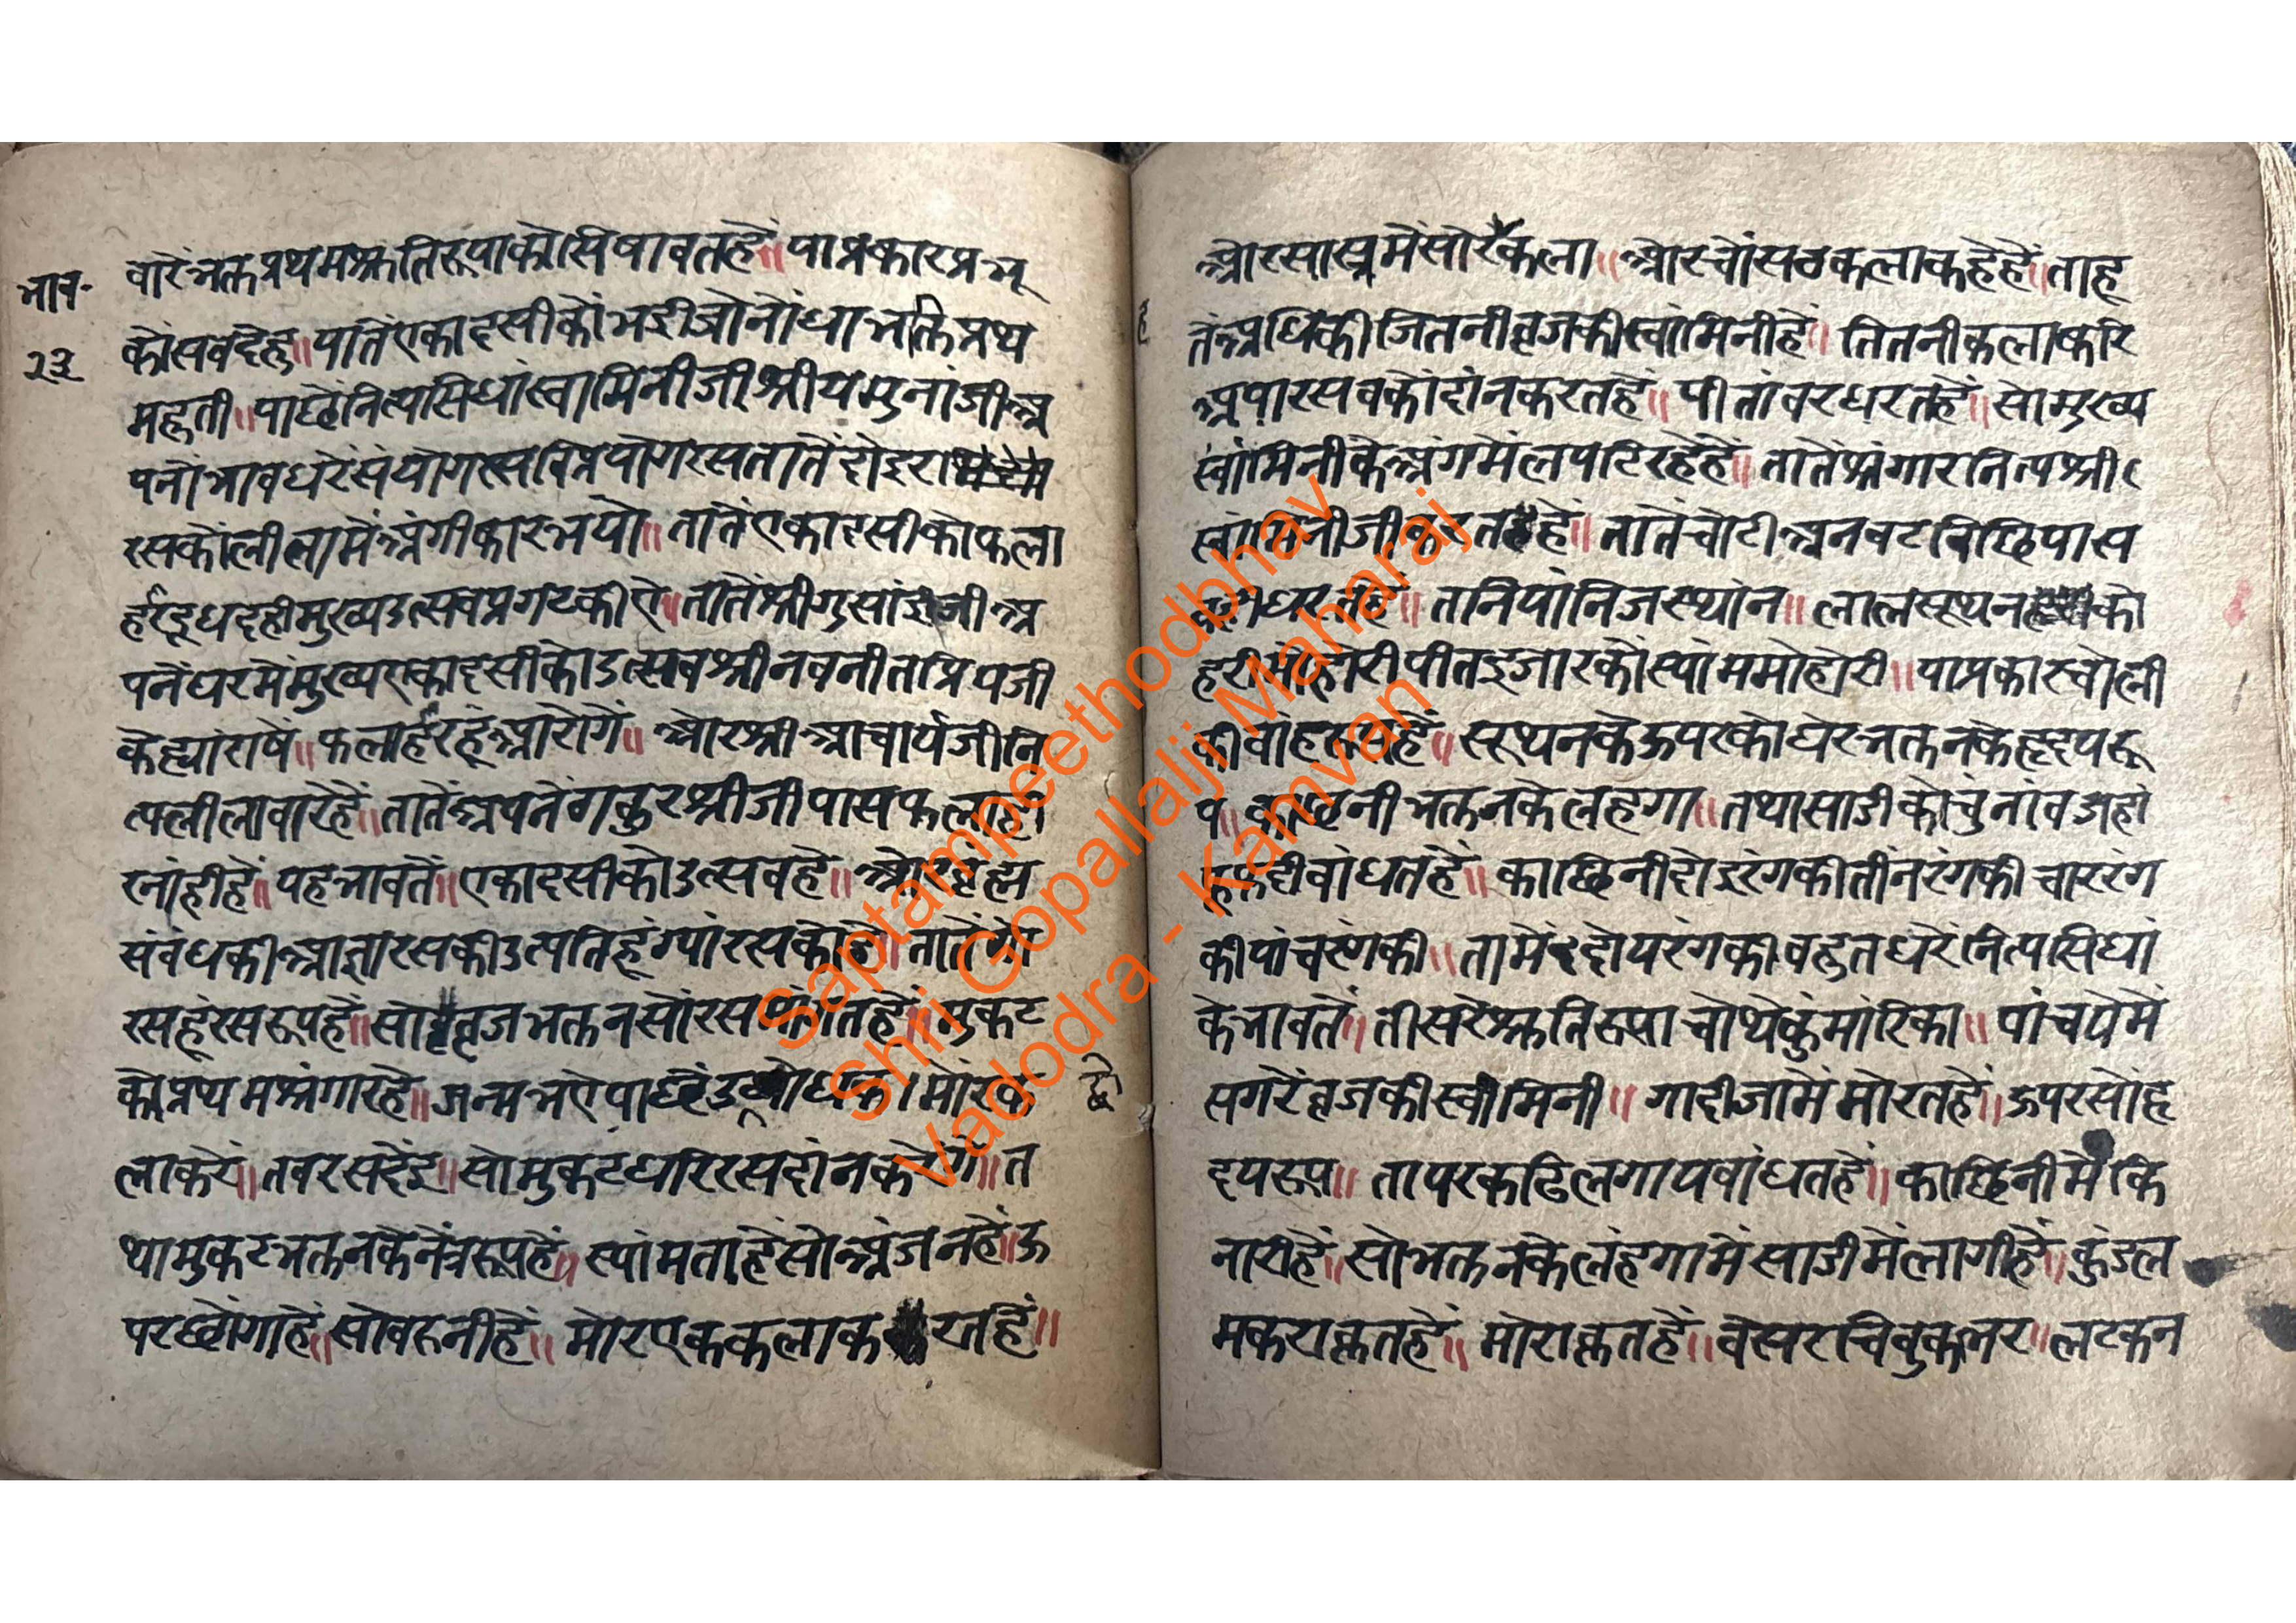 भाव॰
२३
वारेंभक्तप्रथमश्रुतिरूपाकोसिषावतहें॥ याप्रकारप्रभू
कोंसबदेहु॥ यातेंएकादसीकोंभईजोनोंधाभक्तिप्रथ
महुती॥ पाछेंनित्यसिधांस्वामिनीजीश्रीयमुनांजीअ
पनोंभावधरेंसंयोगरसविप्रयोगरसतातेंदोइ
रसकोंलीलामेंअंगीकारभयो॥ तातेंएकादसीकोफला
र्हारदूधदहीमुख्यउत्सवप्रगटकीए॥ तातेंश्रीगुसांइजीअ
पनेंघरमेंमुख्यएकादसीकोउत्सवश्रीनवनीतप्रियजी
केह्यांराषें॥ फलार्हारहूंआरोगें॥ ओरश्रीआचार्यजीनि
त्यलीलावारेहें॥ तातेंअपनेंगकुरश्रीजीपासफलार्हा
रनांहीहें॥ यहभावतें॥ एकादसीकोउत्सवहे॥ ओरब्रह्म
संबंधकीआज्ञारसकीउत्पतिहूंग्यांरसकोहे॥ तातें
रसहूंरसरूपहें॥ सोब्रजभक्तनसोंरस हें॥ मुकट
कोप्रथमश्रंगारहे॥ जन्मभएपाछें मोरक
छे
लाकरें॥ तबरसदेंइ॥ सोमुकटधरिरसदांनकरेंगे॥ त
थामुकटभक्तनकेनेंत्ररूपहें॥ स्यांमताहेंसोअंजनहे॥ ऊ
परछोंगाहें॥ सोवरुनीहें॥ मोरएककलाक रतहें॥
ओरसास्त्रमेंसोरेंकला॥ ओरचोंसठकलाकहेहें॥ ताहू
हे
तेंअधिकीजितनीब्रजकीस्वांमिनीहें॥ तितनीकलाकरि
अपारसबकोंदांनकरतहें॥ पीतांबरधरतहें॥ सोमुख्य
स्वांमिनीकेअंगमेंलपटिरहेहें॥ तातेंश्रंगारनित्यश्री
स्वांमिनीजीकरतहें॥ तातेंचोटीअनवटबिछियास
धरतहें॥ तनियांनिजस्थांन॥ लालसूथन को
हरीमोहोरीपीतइजारकोंस्यांममोहोरी॥ याप्रकारचोली
कीबांहहें॥ सूथनकेऊपरकोघेरभक्तनकेहृदयरू
प॥ काछनीभक्तनकेलहगा॥ तथासाडीकोचुंनांवजहां
बांधतहें॥ काछिनीदोइरंगकीतींनरंगकीचाररंग
कीपांचरंगकी॥ तामेंदोयरंगकीबहुतधरेंनित्यसिधां
केभावतें॥ तीसरेश्रुतिरूपाचोथेकुंमांरिका॥ पांचयेमें
सगरेंब्रजकीस्वांमिनी॥ गादीजामेंमोरतहें॥ ऊपरसोंहृ
दयरूप॥ तापरकटिलगायबांधतहें॥ काछिनीमेंकि
नारीहें॥ सोभक्तनकेलंहगामेंसाडीमेंलागीहें॥ कुंडल
मकराकृतहें॥ मोराकृतहें॥ बेसरचिबुकनर॥ लटकन
Saptampeethodbhav
Shri Gopallalji Maharaj
Vadodra - Kamvan